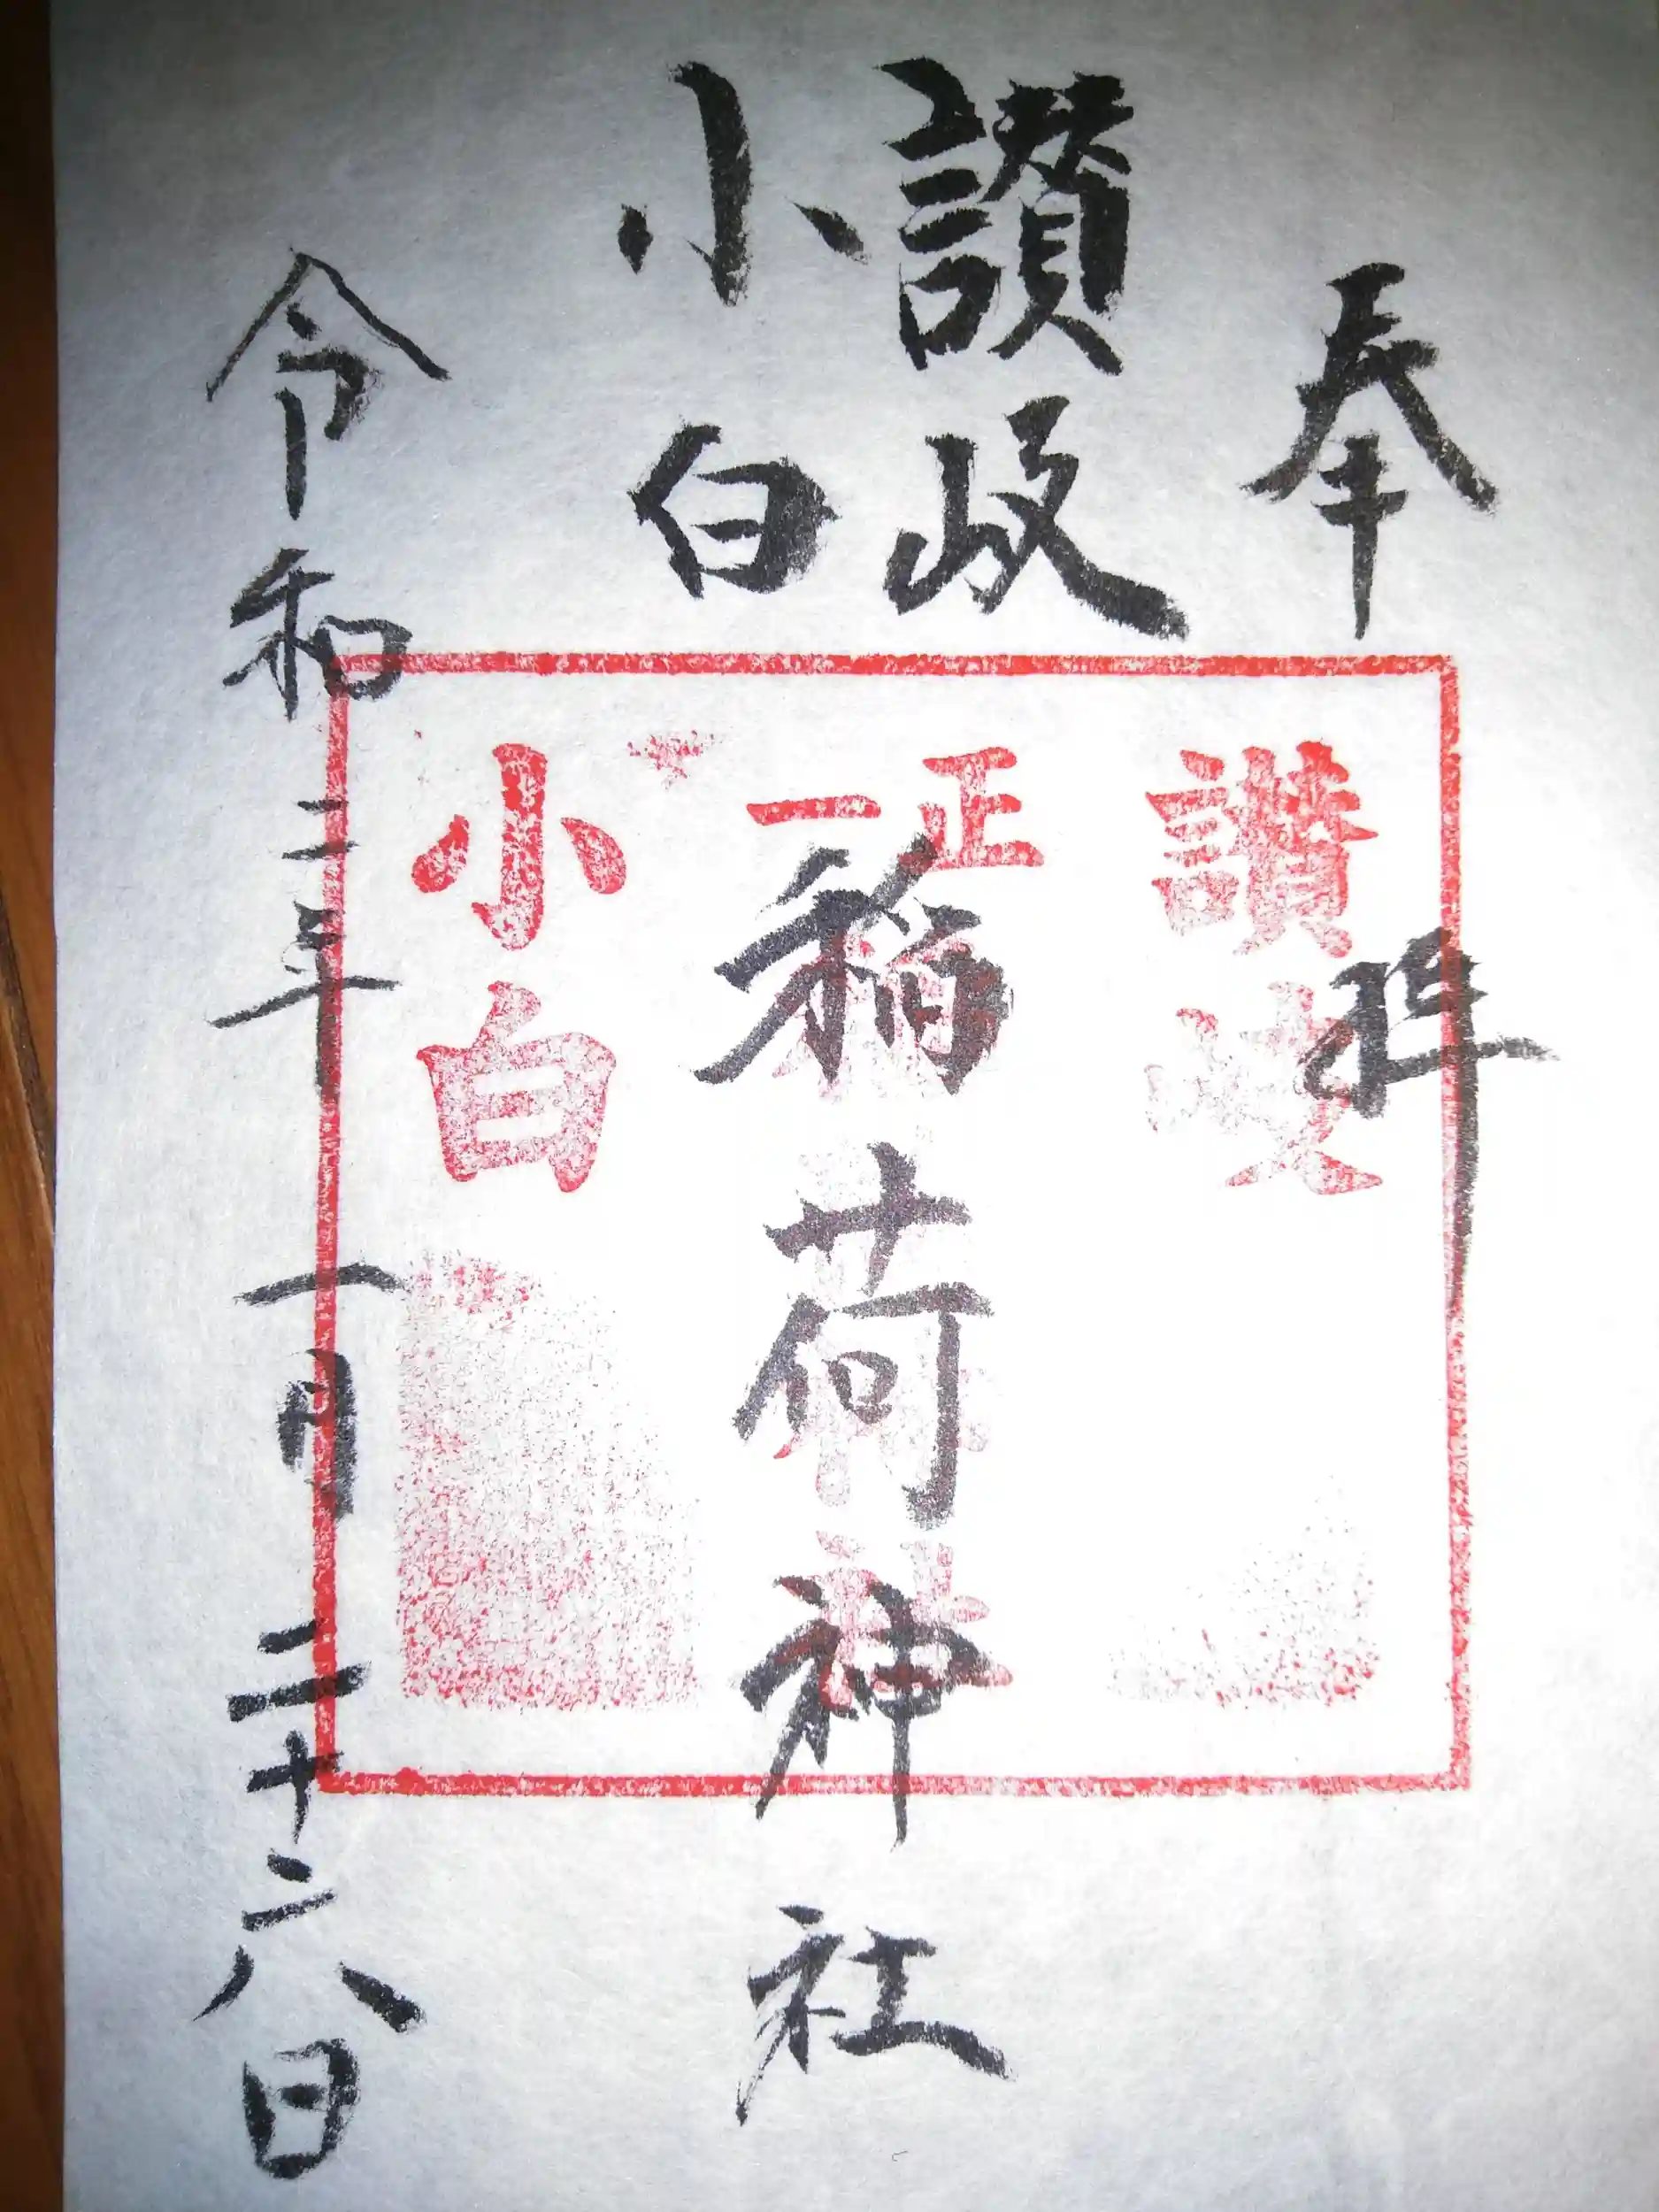 奉拝
讃岐
小白
稲荷神社
令和二年一月二十六日
讃岐
正一
小白